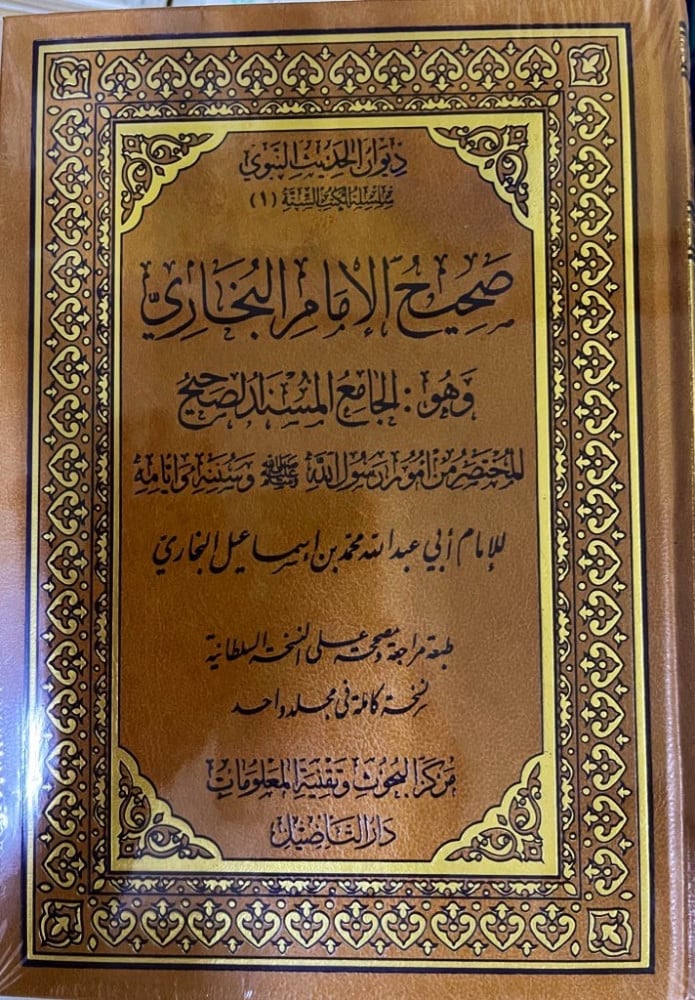 ديوان الحديث النبوي
سلسلة الكتب الستة (١)
صَحِيحُ الإمَامِ البُخَارِيِّ
وَهُوَ: الجَامِعُ المُسْنَدُ الصَّحِيحُ
المُخْتَصَرُ مِنْ أُمُورِ رَسُولِ اللَّهِ ﷺ وَسُنَنِهِ وَأَيَّامِهِ
للإمام أبي عبد الله محمد بن إسماعيل البخاري
طبعة مراجعة ومصححة على النسخة السلطانية
نسخة كاملة في مجلد واحد
مركز البحوث وتقنية المعلومات
دار التأصيل